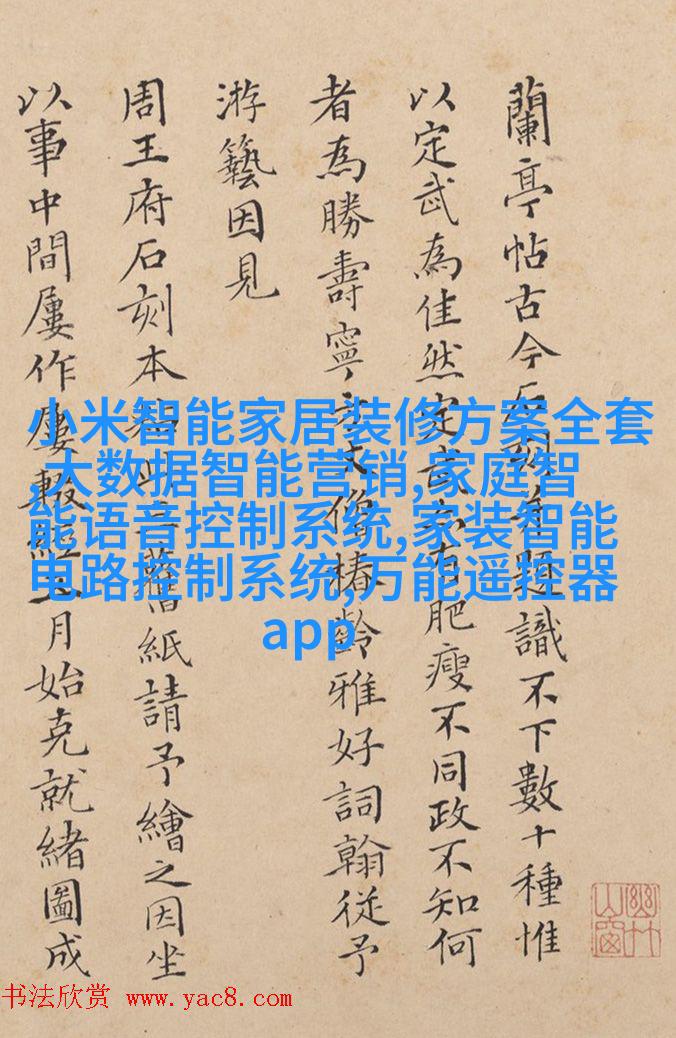 蘭亭帖古今石刻題識不下數十種惟
以定武為佳然定武亦有肥瘦不同政不知何
者為勝壽寧僧椿齡雅好詞翰從予
游藝因見
周王府石刻本此舊紙請予繪之因坐
以事中間屢作屢輟經月始克就緒圖成
幽竹山窗
小米智能家居装修方案全套
大数据智能营销,家庭智
能语音控制系统,家装智能
电路控制系统,万能遥控器
app
书法欣赏 www.yac8.com